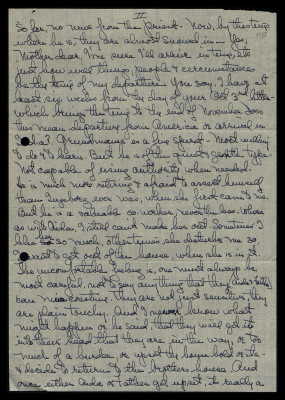 IV
So far no news from the Orient. Now, by this time
where he is, they are almost snowed in — Yes,
Mother dear, I'm sure I'll arrive in time, its
just how will things, people & circumstances
be by time of my departure. You say, I have at
least six weeks from the day of your Oct 3rd letter
which brings the time to the end of November. Does
this mean departure from America or arrival in
is a fine sport. Most willing
to do & learn. But he is of the quiet & gentle type.
Not capable of using authority when needed.
He is much more retiring & afraid to assert himself
than ever was, when she first came to me.
But he is a valuable co-worker nevertheless. Where
as with Aida, I still can't make her out. Sometimes I
like her so much, other times she disturbs me so
I want to get out of the house, when she is in it.
The uncomfortable feeling is, one must always be
most careful, not to say anything that they
can misconstrue. They are not just sensitive, they
are plain touchy. And I never know what
might happen or be said that they will get it
into their head that they are in the way, or too
much of a burden or upset the household or etc.
& decide to return to the brothers house. And
once either Aida or Father get upset, its really a